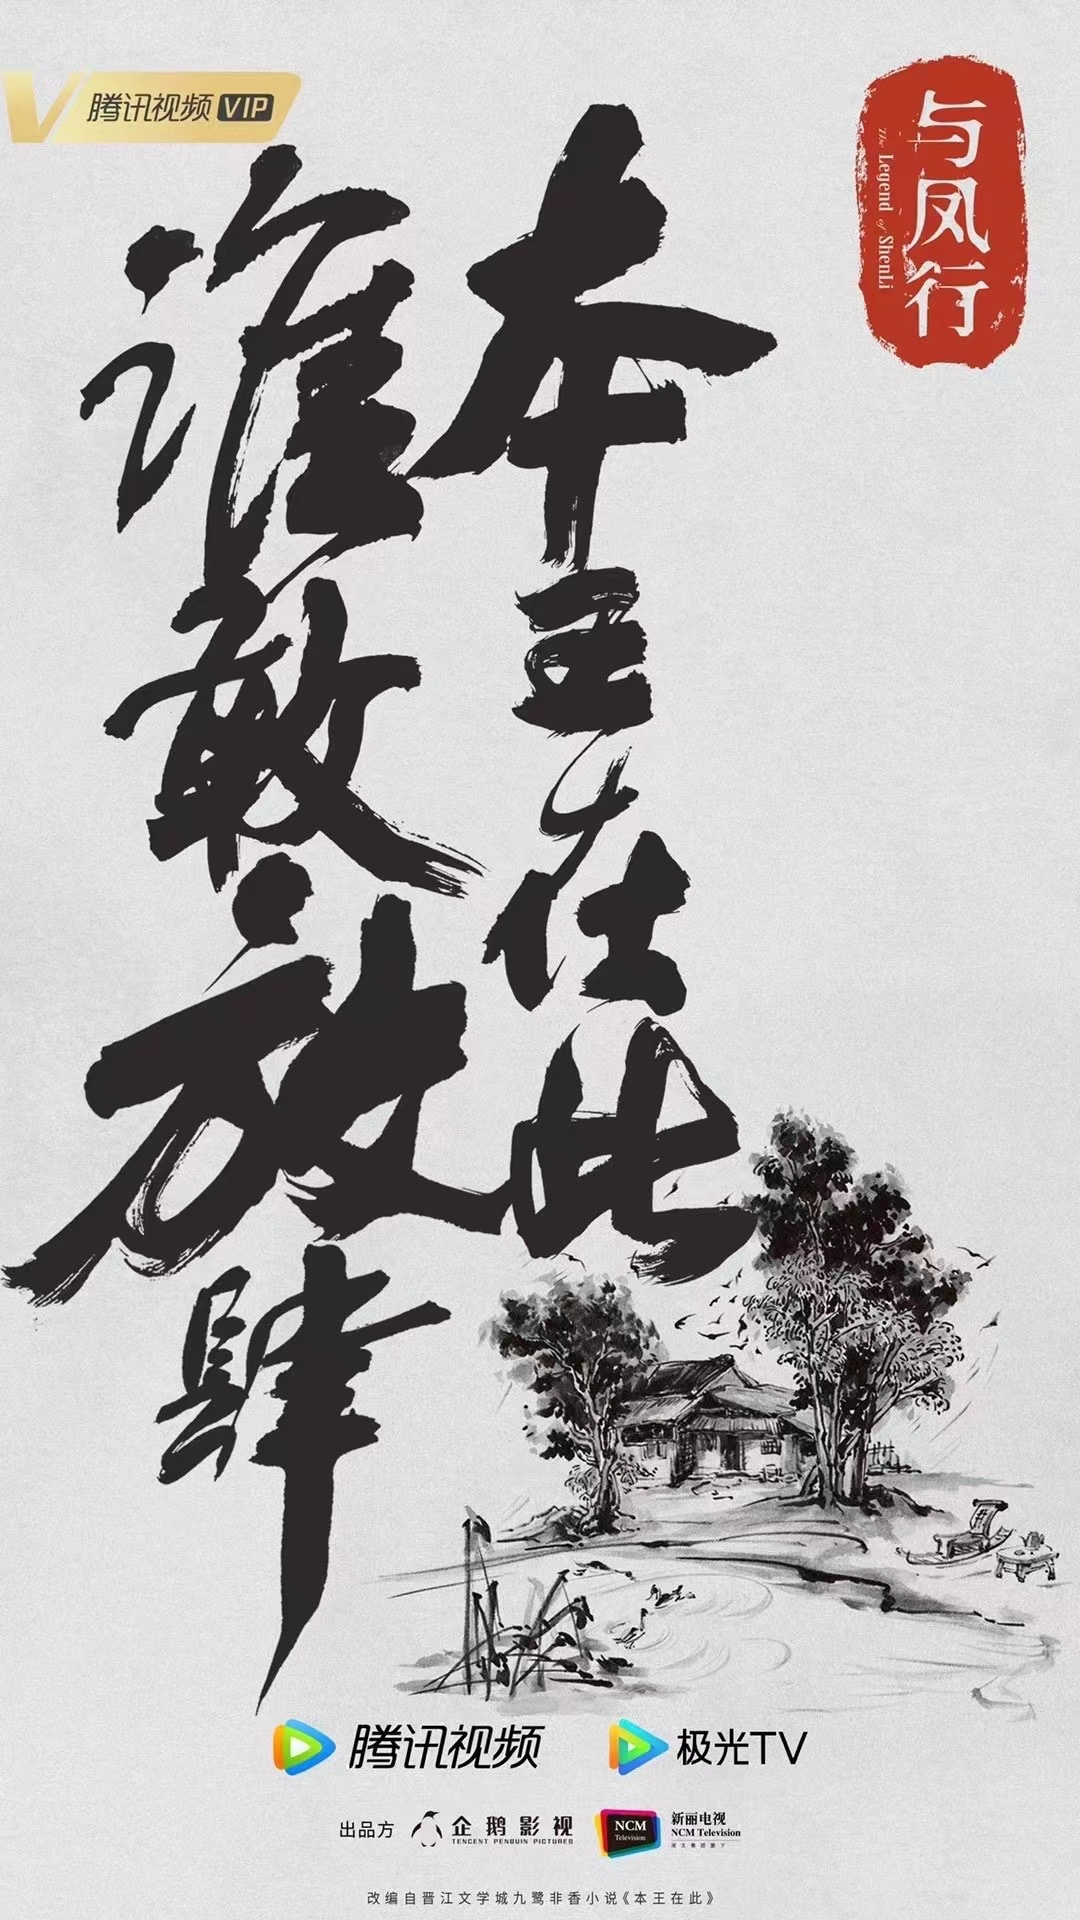 腾讯视频 VIP
与凤行
The Legend of ShenLi
本王在此
谁敢放肆
腾讯视频
极光TV
出品方
企鹅影视
TENCENT PENGUIN PICTURES
NCM
Television
新丽电视
NCM Television
阅文集团旗下
改编自晋江文学城九鹭非香小说《本王在此》